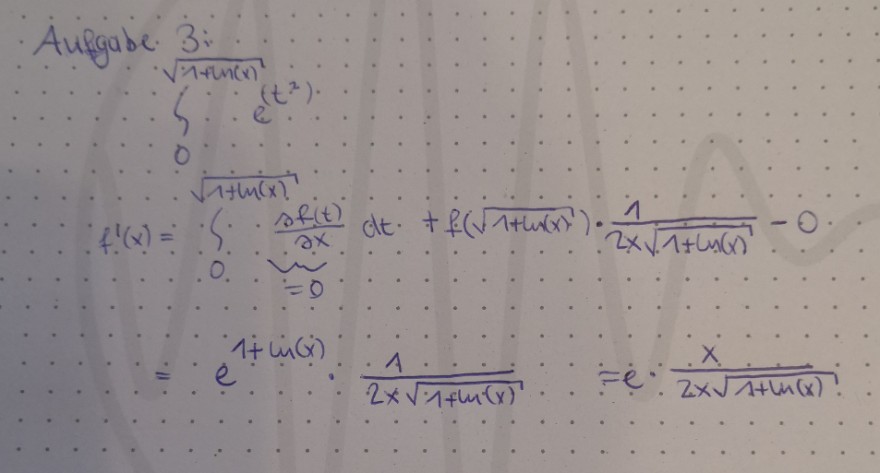 Aufgabe 3:
√(1+ln(x))
∫ e^(t²)
0
√(1+ln(x))
f'(x) = ∫ ∂f(t)/∂x dt + f(√(1+ln(x))) · 1/(2x√(1+ln(x))) - 0
0 =0
= e^(1+ln(x)) · 1/(2x√(1+ln(x))) = e · x/(2x√(1+ln(x)))